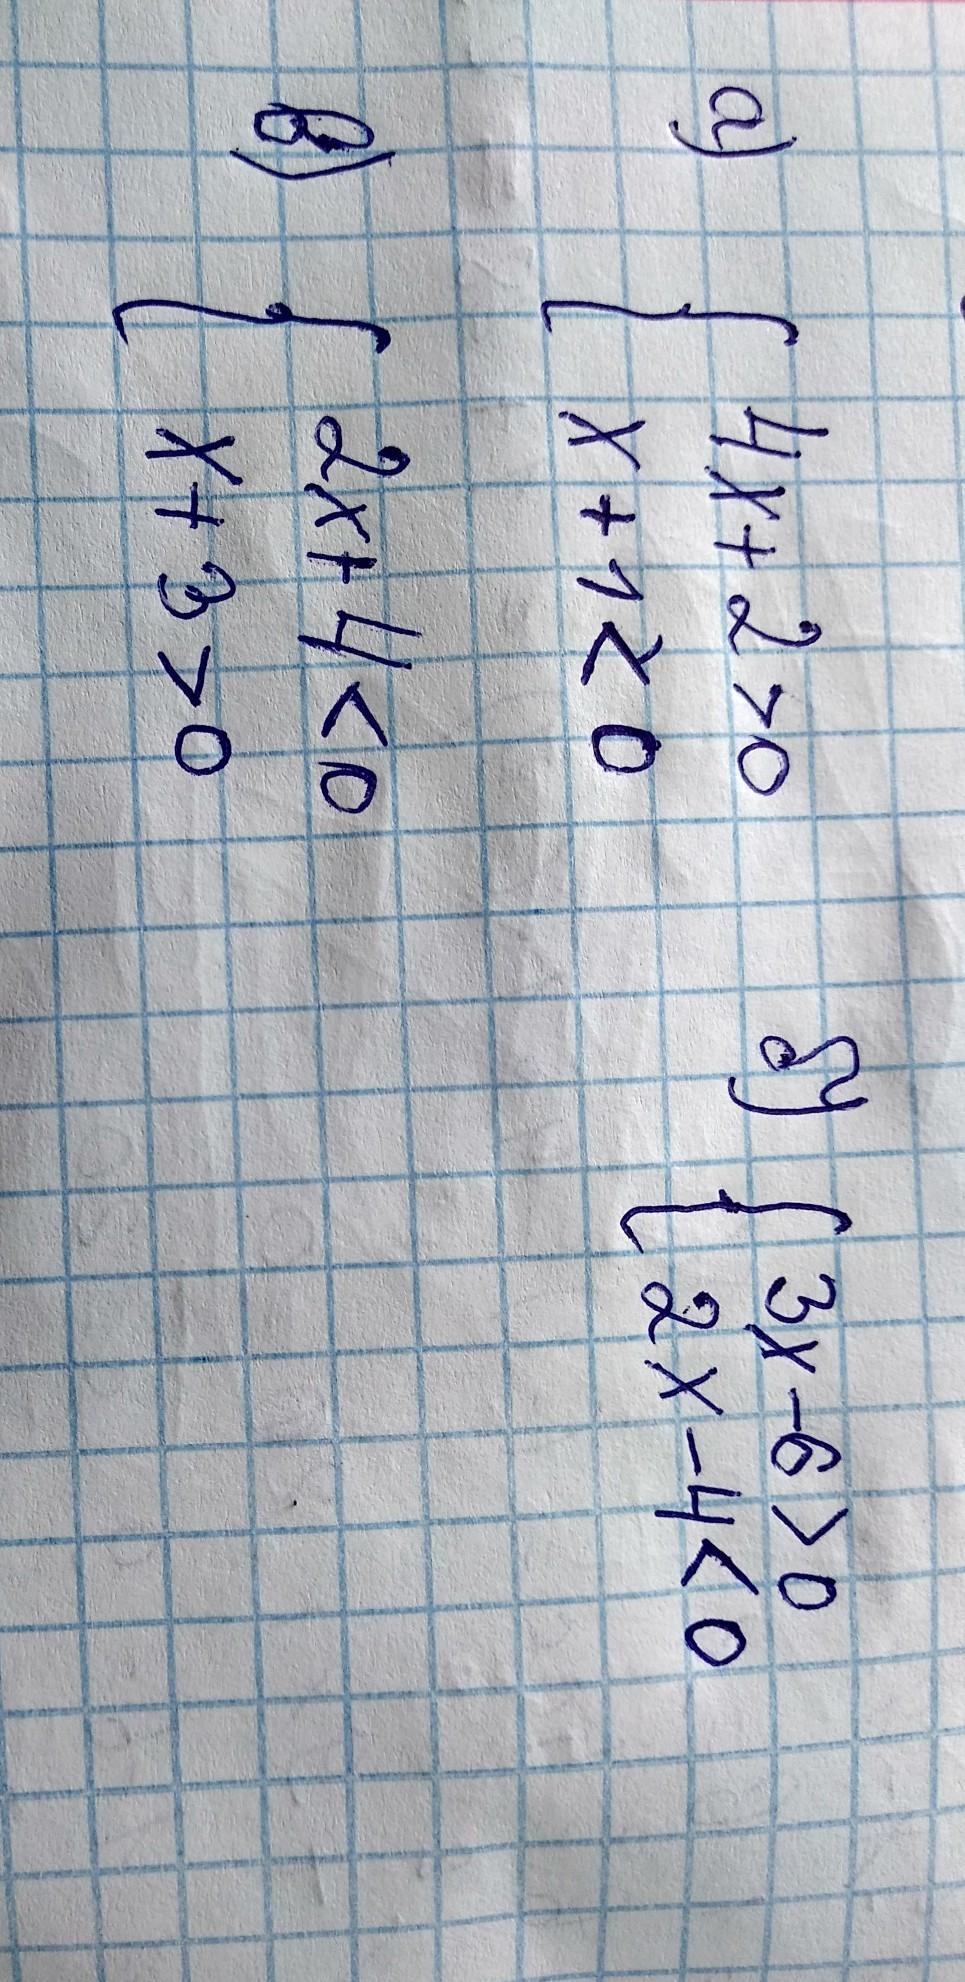 а) { 4x+2>0
x+1<0
б) { 3x-6>0
2x-4<0
в) { 2x+4<0
x+3>0